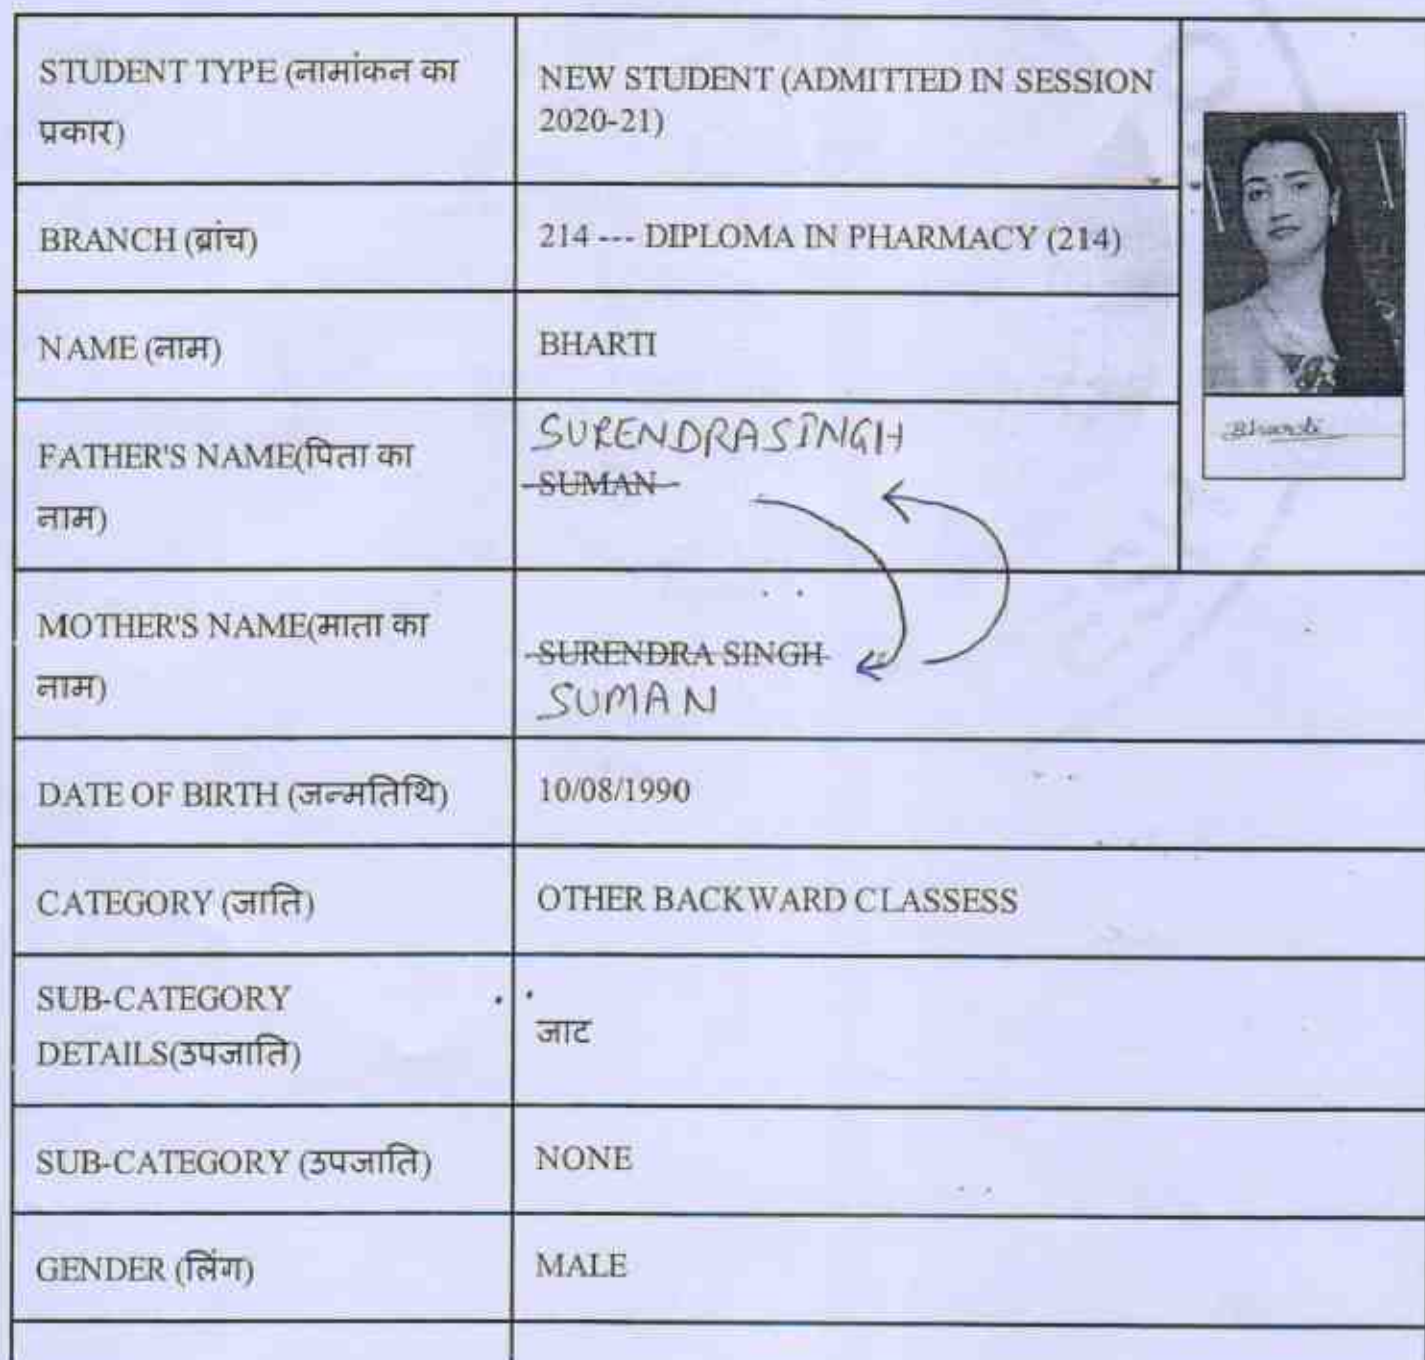 STUDENT TYPE (नामांकन का
प्रकार)
NEW STUDENT (ADMITTED IN SESSION
2020-21)
BRANCH (ब्रांच)
214 --- DIPLOMA IN PHARMACY (214)
NAME (नाम)
BHARTI
Bharti
FATHER'S NAME(पिता का
नाम)
SURENDRA SINGH
SUMAN
MOTHER'S NAME(माता का
नाम)
SURENDRA SINGH
SUMAN
DATE OF BIRTH (जन्मतिथि)
10/08/1990
CATEGORY (जाति)
OTHER BACKWARD CLASSESS
SUB-CATEGORY
DETAILS(उपजाति)
जाट
SUB-CATEGORY (उपजाति)
NONE
GENDER (लिंग)
MALE